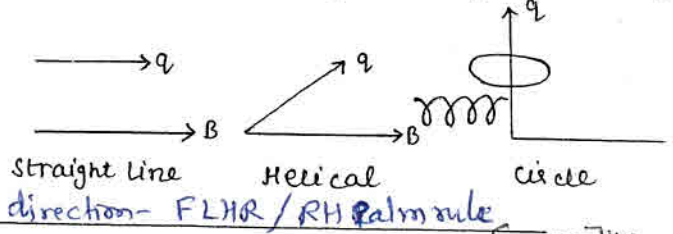 q q q
B B
Straight Line Helical Circle
direction- FLHR / RH Palm rule